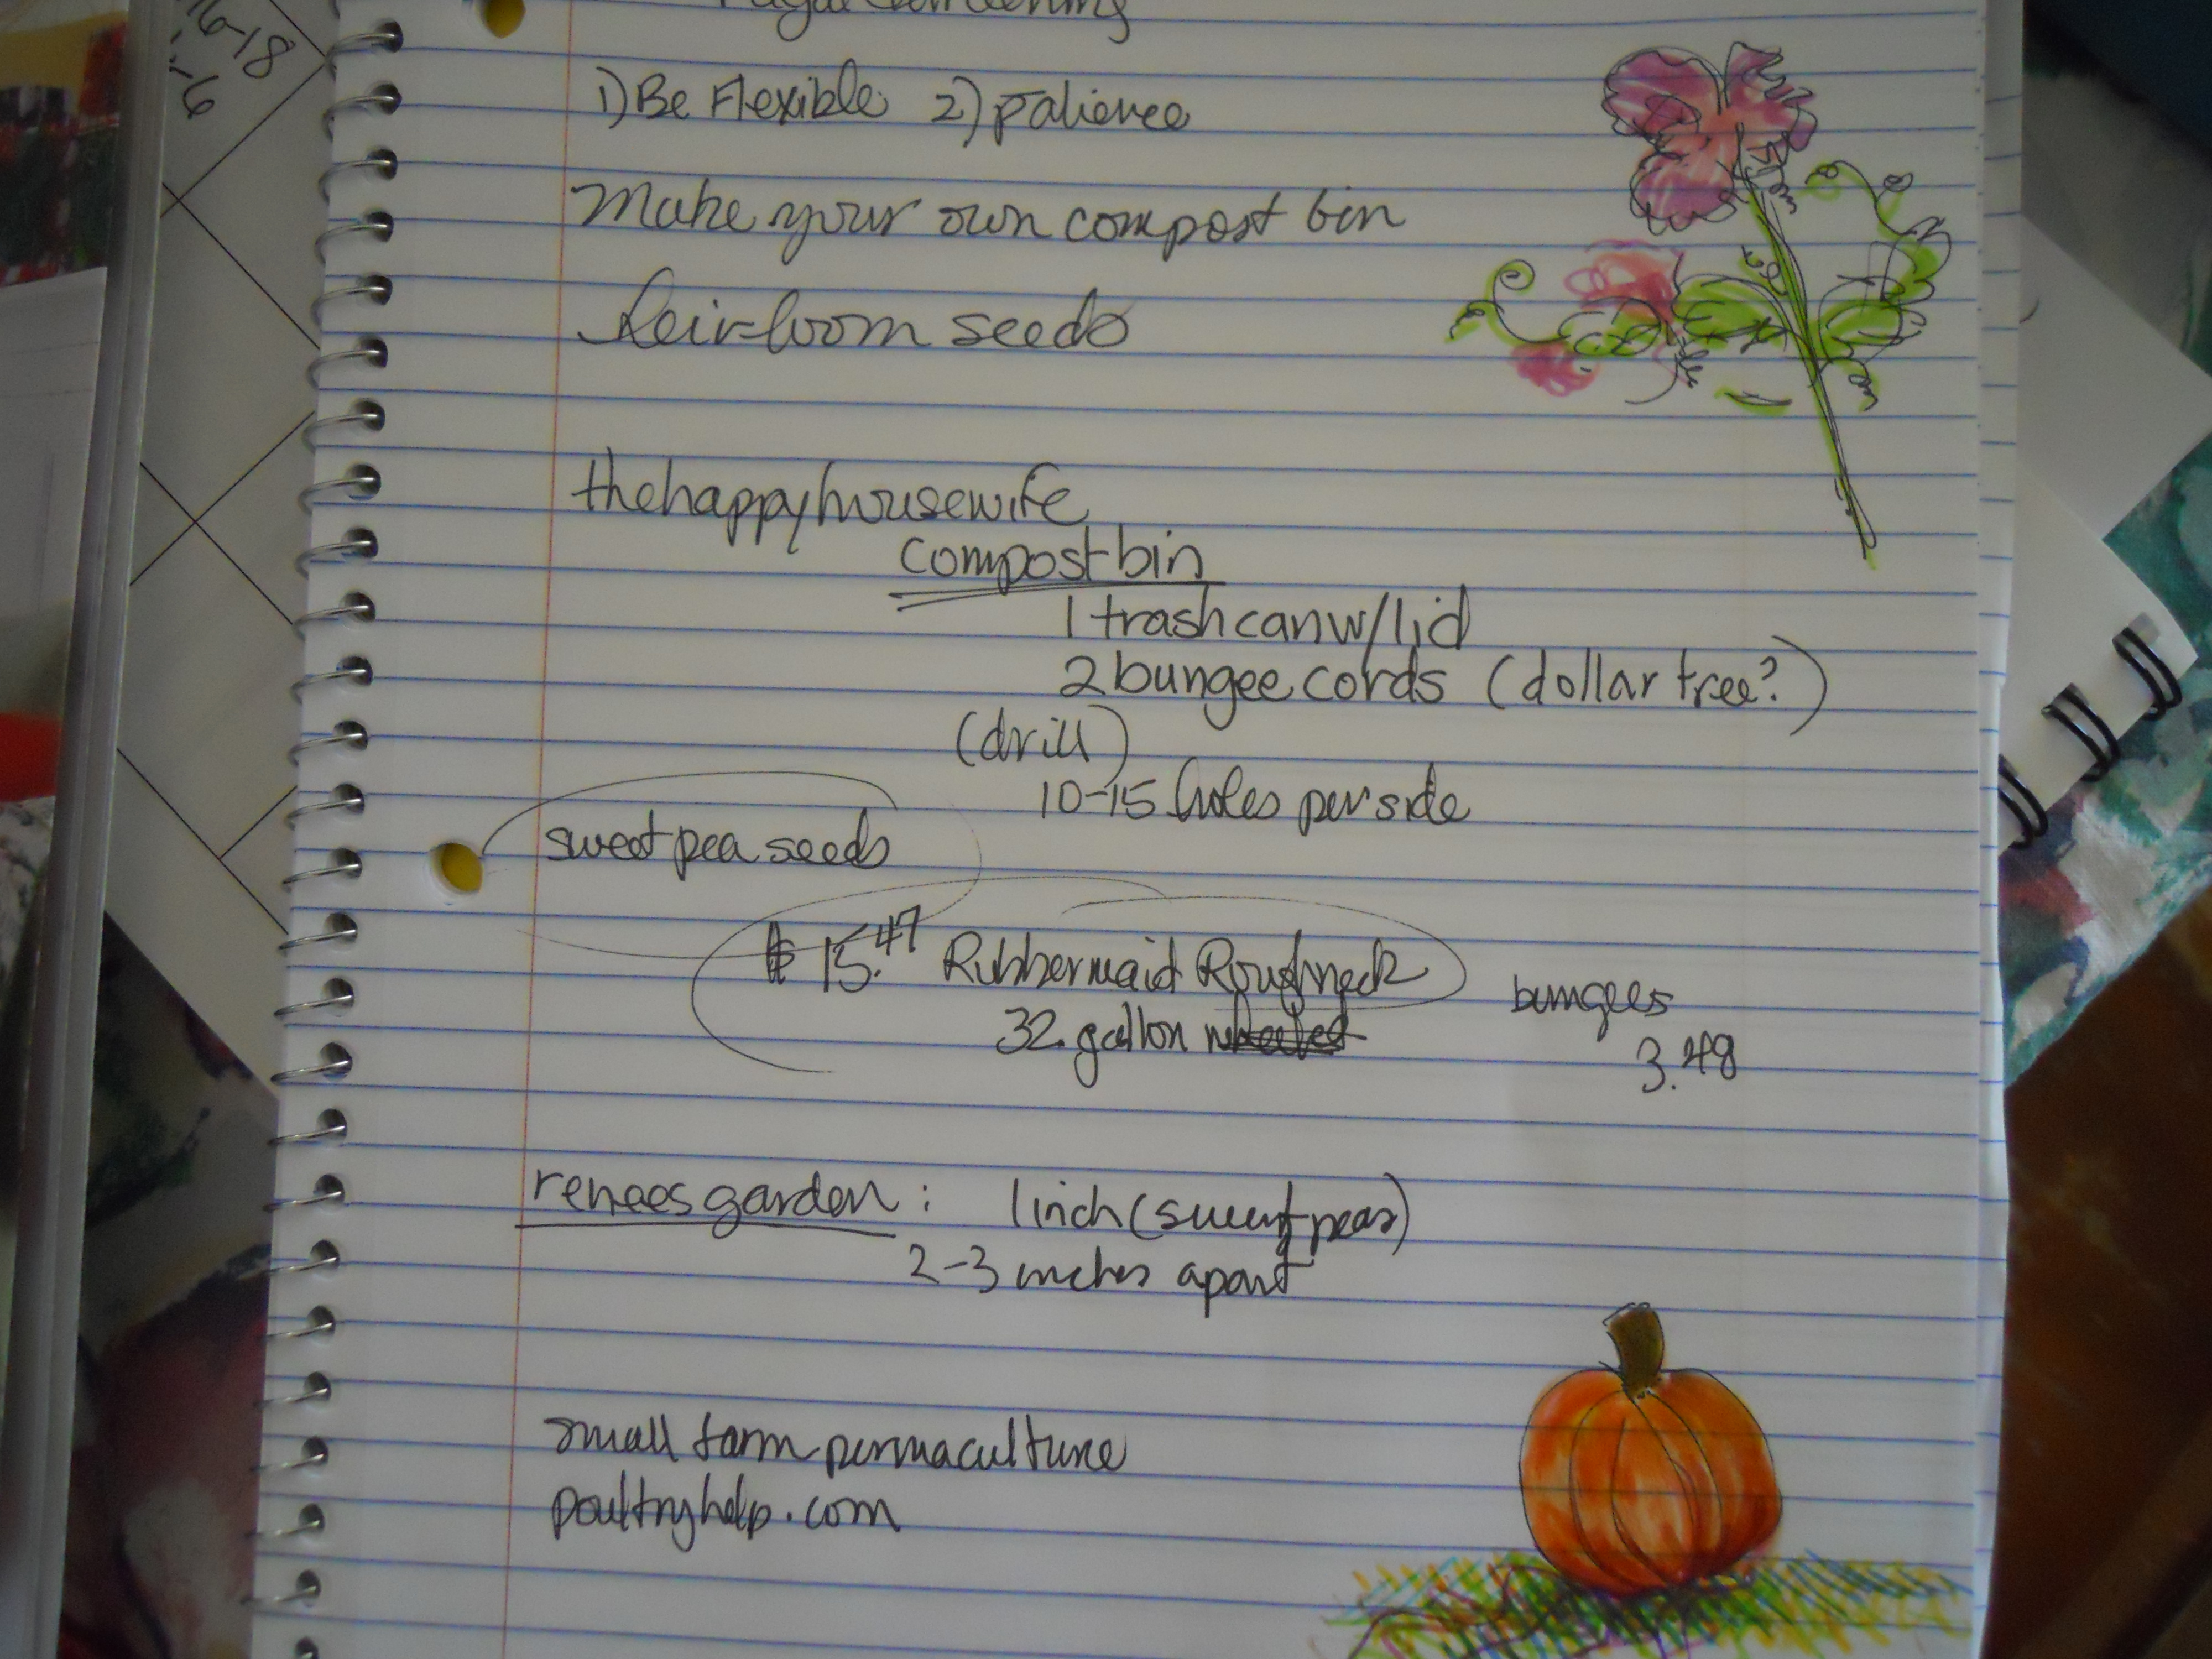 Gardening
1) Be Flexible 2) patience
Make your own compost bin
Heirloom seeds
thehappyhousewife
compost bin
1 trash can w/lid
2 bungee cords (dollar tree?)
(drill)
10-15 holes per side
sweet pea seeds
$15.47 Rubbermaid Roughneck
32 gallon
bungees
3.48
reneesgarden: 1 inch (sweet peas)
2-3 inches apart
small farm permaculture
poultryhelp.com
16-18
-6